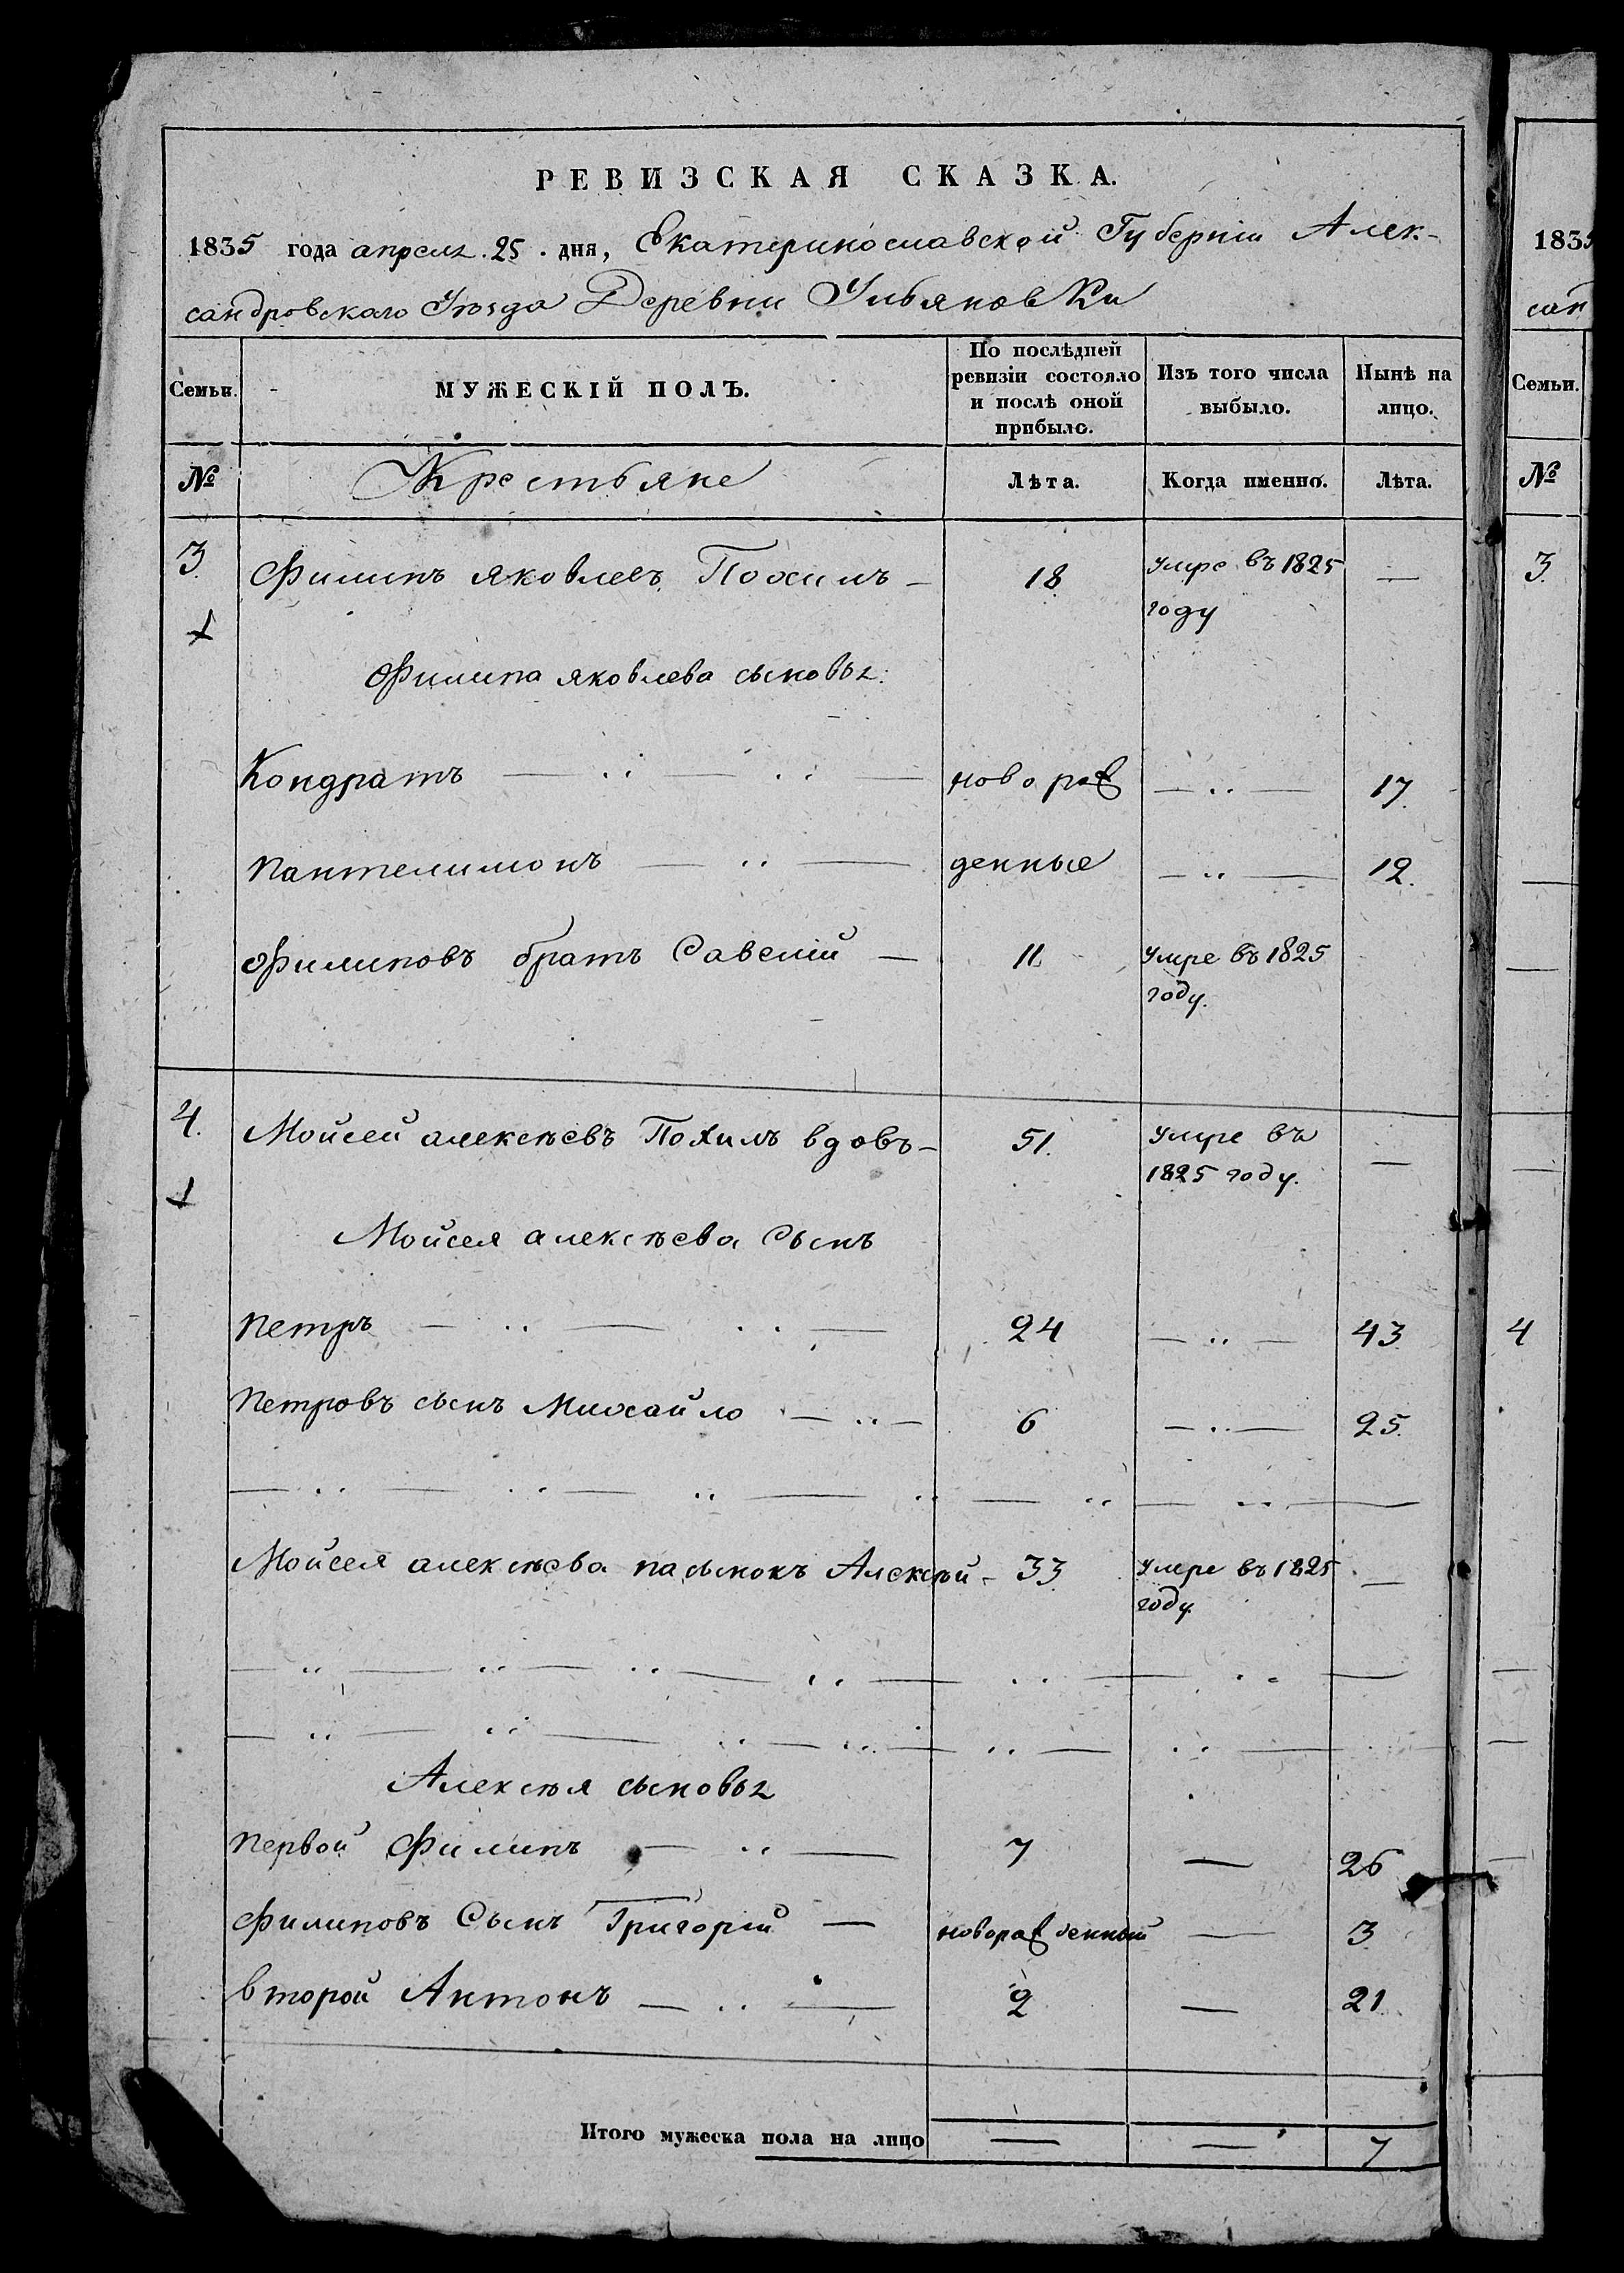 РЕВИЗСКАЯ СКАЗКА.
1835 года апреля 25 дня, Екатеринославской Губерніи Алек-
сандровскаго Уѣзда Деревни Ульяновки
Семьи. МУЖЕСКІЙ ПОЛЪ. По послѣдней ревизіи состояло и послѣ оной прибыло. Изъ того числа выбыло. Нынѣ на лицо.
№ Крестьяне Лѣта. Когда именно. Лѣта.
3. Филипъ яковлевъ Похилъ – 18 умре въ 1825 году —
Филипа яковлева сыновья:
Кондратъ — ·· — ·· — новорож — ·· — 17.
Пантелимонъ — ·· — денные — ·· — 12.
Филиповъ братъ Савелій — 11. умре въ 1825 году.
4. Мойсей алексѣевъ Похилъ вдовъ – 51. умре въ 1825 году. —
Мойсея алексѣева Сынъ
Петръ — ·· — ·· — 24 — ·· — 43
Петровъ сынъ Михайло — ·· — 6 — ·· — 25.
— ·· — ·· — ·· — ·· — ·· — ·· —
Мойсея алексѣева пасынокъ Алексѣй – 33. умре въ 1825 году. —
— ·· — ·· — ·· — ·· — ·· — ·· —
— ·· — ·· — ·· — ·· — ·· — ·· —
Алексѣя сыновья
Первой Филипъ — ·· — 7 — 26
Филиповъ Сынъ Григорій — новорожденный — 3.
второй Антонъ — ·· — 2 — 21.
Итого мужеска пола на лицо — — 7
1835
сан
Семьи.
№
3.
4